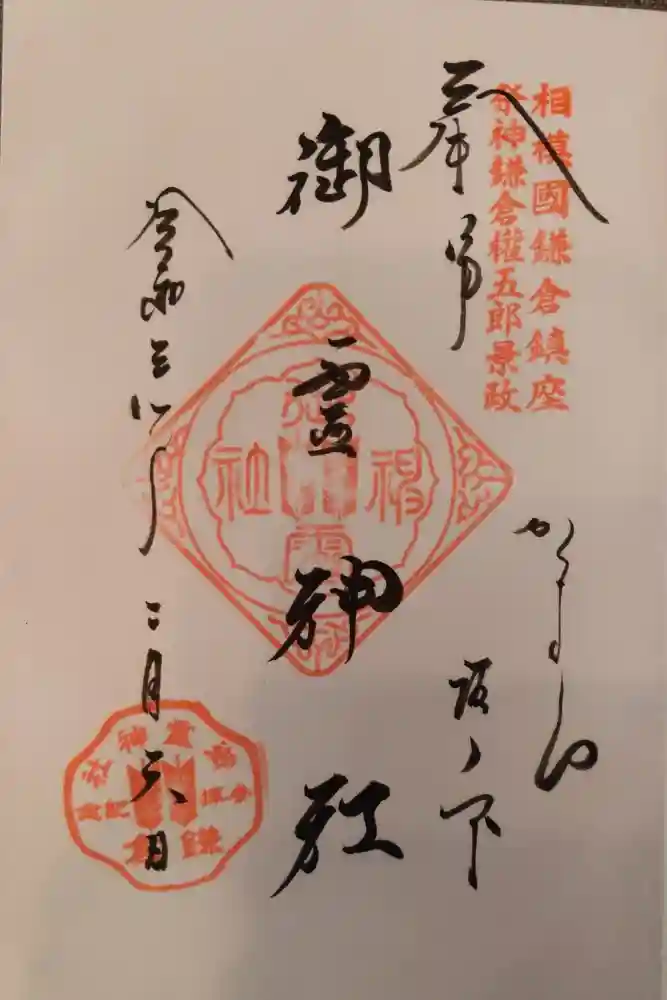 相模國鎌倉鎮座
祭神鎌倉權五郎景政
奉拝
かまくら
坂ノ下
御霊神社
令和三年
二月六日